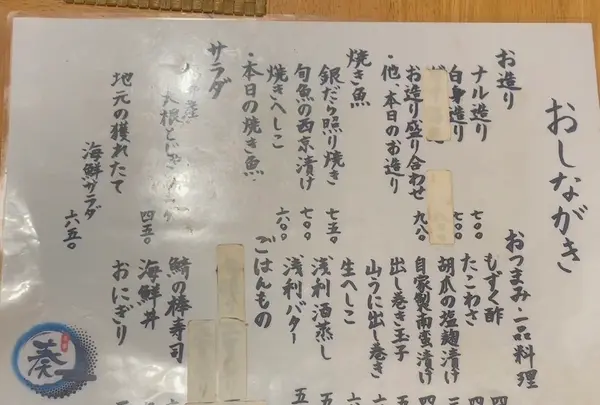 おしながき
お造り
ナル造り 七〇〇
白身造り 七〇〇
お造り盛り合わせ 九八
・他、本日のお造り
焼き魚
銀だら照り焼き 七五〇
旬魚の西京漬け 七〇〇
焼きへしこ 六〇〇
・本日の焼き魚
サラダ
大根と
四五〇
地元の獲れたて
海鮮サラダ 六五〇
おつまみ一品料理
もずく酢
たこわさ
胡瓜の塩麹漬け
自家製南蛮漬け
出し巻き玉子
山うに出し巻き
生へしこ
浅利酒蒸し
浅利バター
ごはんもの
鯖の棒寿司
海鮮丼
おにぎり
葵